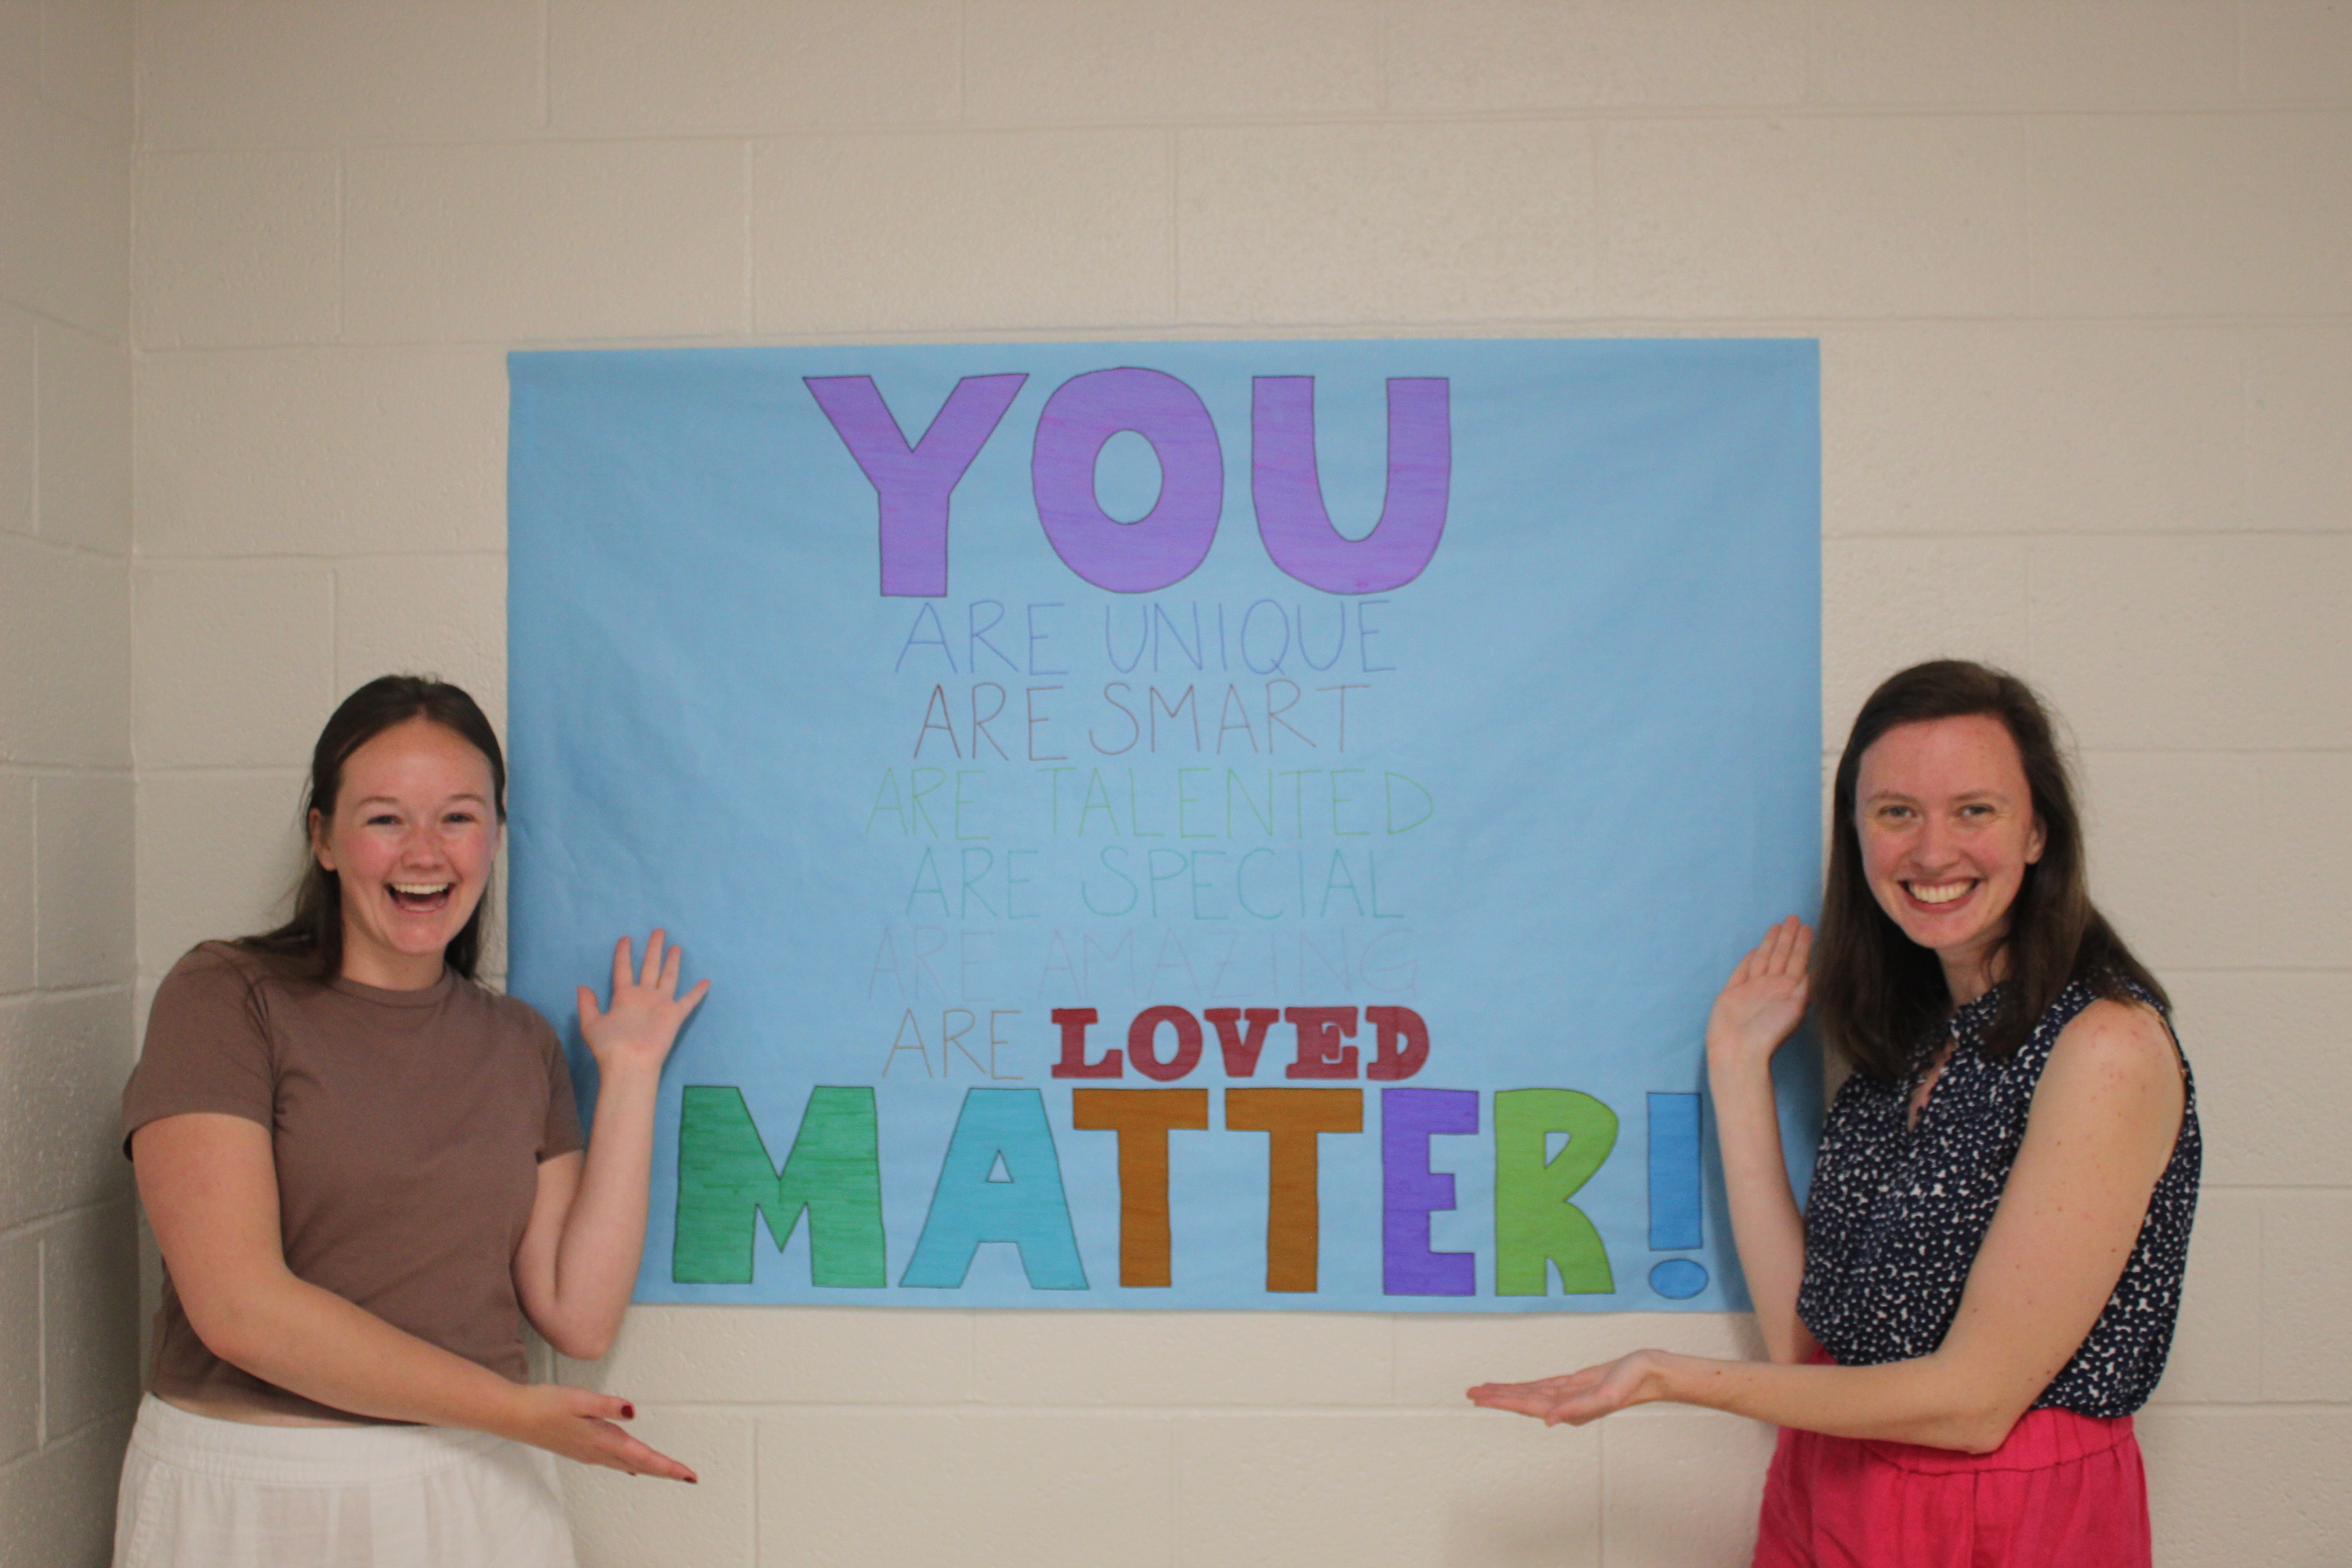 YOU
ARE UNIQUE
ARE SMART
ARE TALENTED
ARE SPECIAL
ARE AMAZING
ARE LOVED
MATTER!